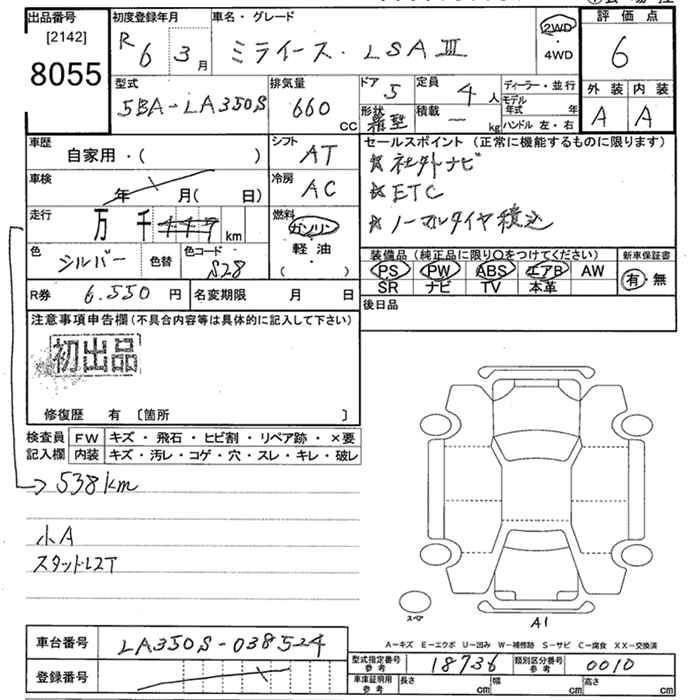 出品番号
[2142]
8055
初度登録年月
R 6 3月
車名・グレード
ミライース・LSA Ⅲ
2WD
・
4WD
評価点
6
外装 内装
A A
型式
5BA-LA350S
排気量
660 CC
ドア 5
形状
定員 4人
積載 ー kg
ディーラー・並行
モデル年式 年
ハンドル 左・右
車歴
自家用・( )
シフト
AT
車検
年 月( 日)
冷房
AC
走行
万 千 km
燃料
ガソリン
軽油
・
( )
色
シルバー
色替
色コード
S28
R券 6.550 円
名変期限 月 日
セールスポイント(正常に機能するものに限ります)
★社外ナビ
★ETC
★ノーマルタイヤ積込
装備品(純正品に限り○をつけてください)
PS PW ABS エアB AW
SR ナビ TV 本革
新車保証書
有・無
後日品
注意事項申告欄(不具合内容等は具体的に記入して下さい)
初出品
修復歴 有 〔箇所 〕
検査員記入欄
FW キズ・飛石・ヒビ割・リペア跡・×要
内装 キズ・汚レ・コゲ・穴・スレ・キレ・破レ
→538km
小A
スタッドレスT
スペア
A1
A-キズ E-エクボ U-凹み W-補修跡 S-サビ C-腐食 XX-交換済
車台番号 LA350S-038524
登録番号
型式指定番号 参考 18736
類別区分番号 参考 0010
車庫証明用 参考 長さ cm 幅 cm 高さ cm